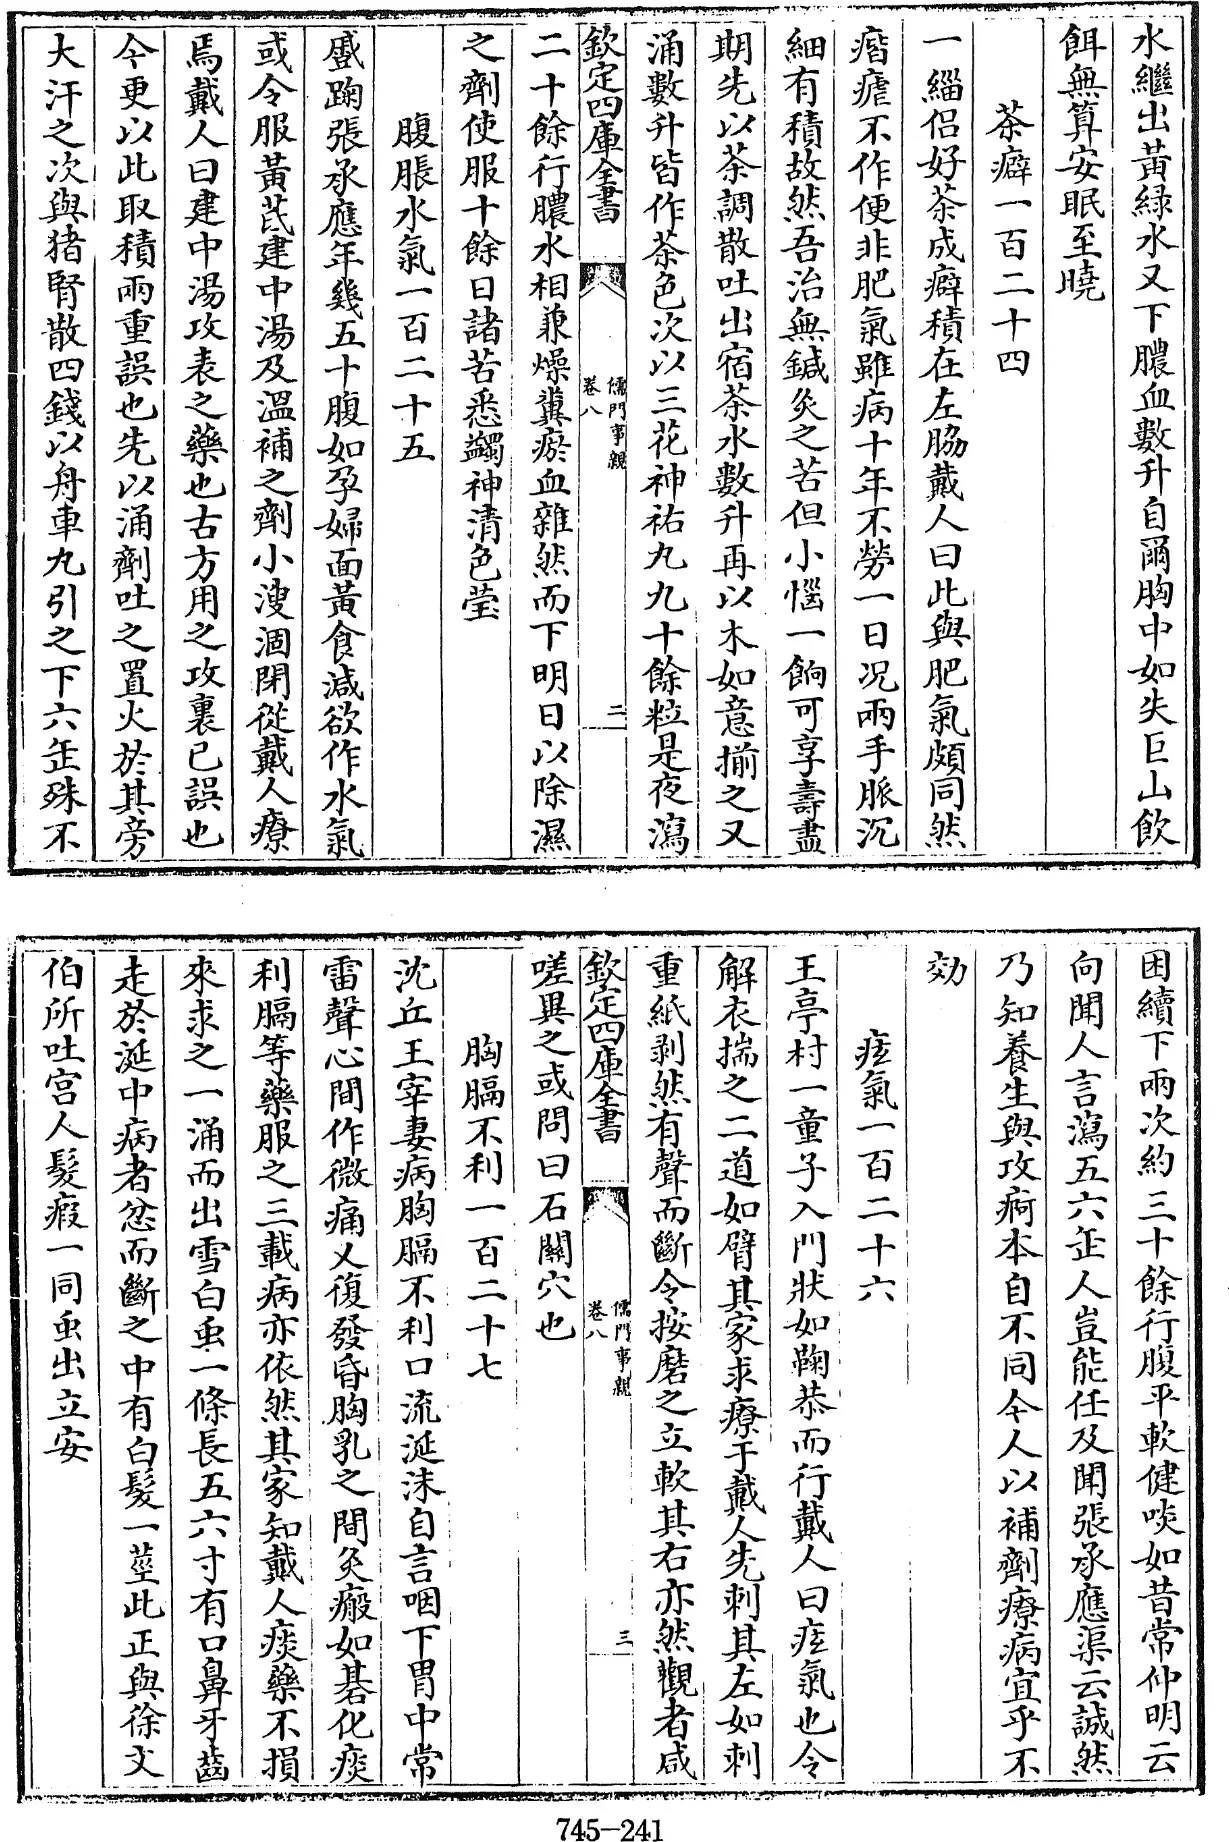 水繼出黃緑水又下膿血數升自爾胸中如失巨山飲
餌無算安眠至曉
茶癖一百二十四
一緇侣好茶成癖積在左脇戴人曰此與肥氣頗同然
㾬瘧不作便非肥氣雖病十年不勞一日况兩手脈沉
細有積故然吾治無鍼灸之苦但小惱一餉可享壽盡
期先以茶調散吐出宿茶水數升再以木如意揃之又
涌數升皆作茶色次以三花神祐丸九十餘粒是夜瀉
欽定四庫全書
儒門事親
卷八
二
二十餘行膿水相兼燥糞瘀血雜然而下明日以除濕
之劑使服十餘日諸苦悉蠲神清色瑩
腹脹水氣一百二十五
蹙踘張承應年幾五十腹如孕婦面黃食減欲作水氣
或令服黃芪建中湯及温補之劑小溲涸閉從戴人療
焉戴人曰建中湯攻表之藥也古方用之攻裏已誤也
今更以此取積兩重誤也先以涌劑吐之置火於其旁
大汗之次與猪腎散四錢以舟車丸引之下六缶殊不
困續下兩次約三十餘行腹平軟健啖如昔常仲明云
向聞人言瀉五六缶人豈能任及聞張承應渠云誠然
乃知養生與攻痾本自不同今人以補劑療病宜乎不
効
痃氣一百二十六
王亭村一童子入門狀如鞠恭而行戴人曰痃氣也令
解衣揣之二道如臂其家求療于戴人先刺其左如刺
重紙剥然有聲而斷令按磨之立軟其右亦然觀者咸
欽定四庫全書
儒門事親
卷八
三
嗟異之或問曰石關穴也
胸膈不利一百二十七
沈丘王宰妻病胸膈不利口流涎沫自言咽下胃中常
雷聲心間作微痛又復發昏胸乳之間灸瘢如碁化痰
利膈等藥服之三載病亦依然其家知戴人痰藥不損
來求之一涌而出雪白虫一條長五六寸有口鼻牙齒
走於涎中病者忿而斷之中有白髮一莖此正與徐文
伯所吐宫人髮瘕一同虫出立安
745-241